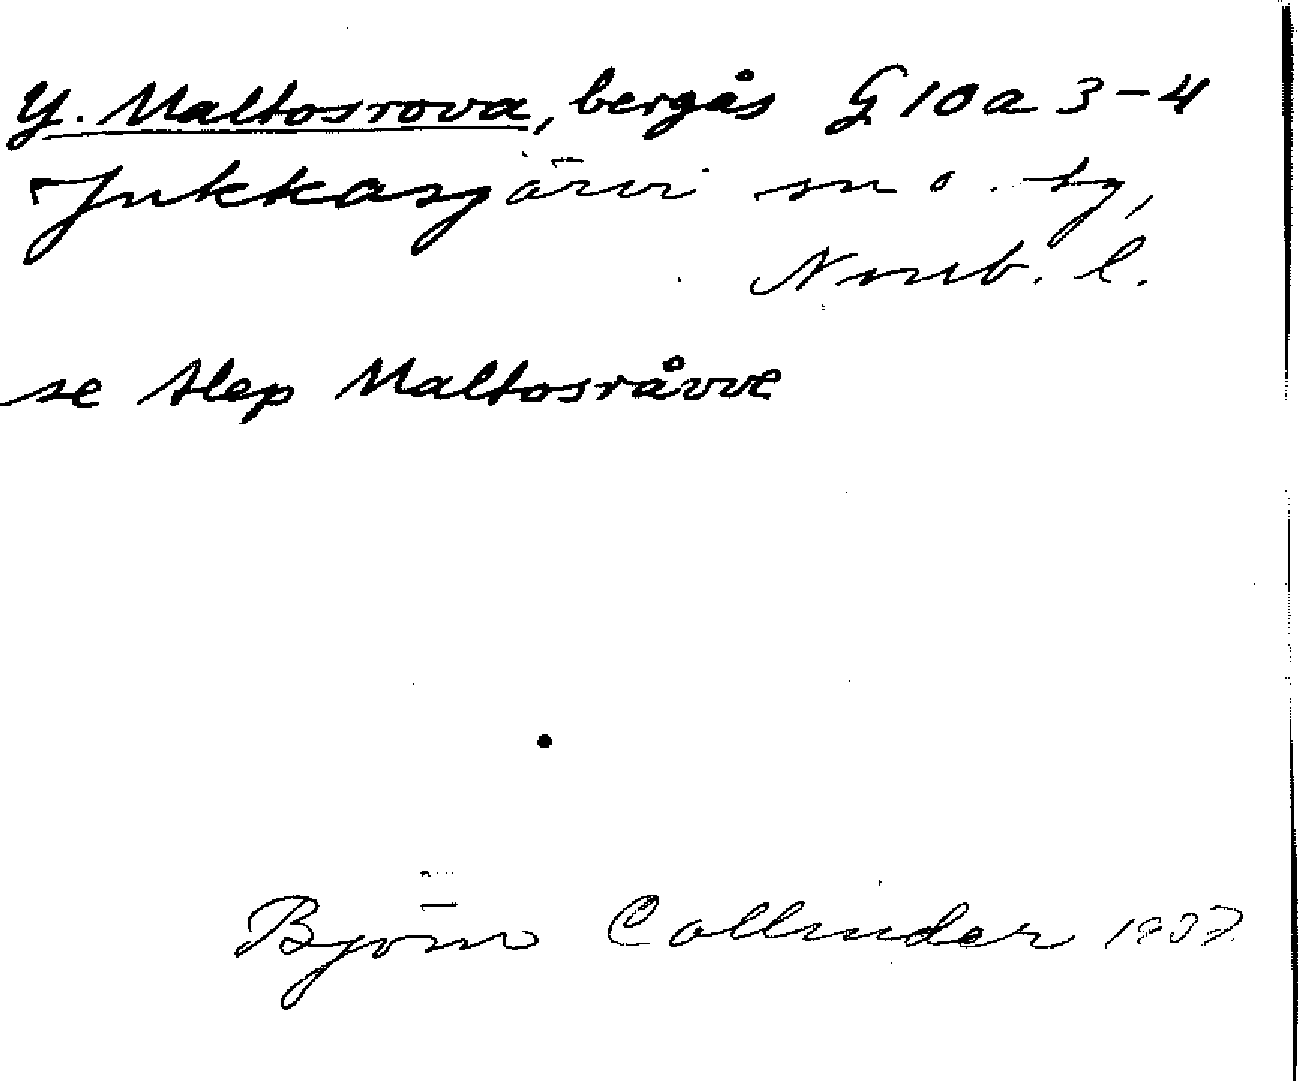 Y. Maltosrova, bergås G 10 a 3-4
Jukkasjärvi sn o. tg,
Norrb. l.
se Alep Maltosråvve
Björn Collinder 1937